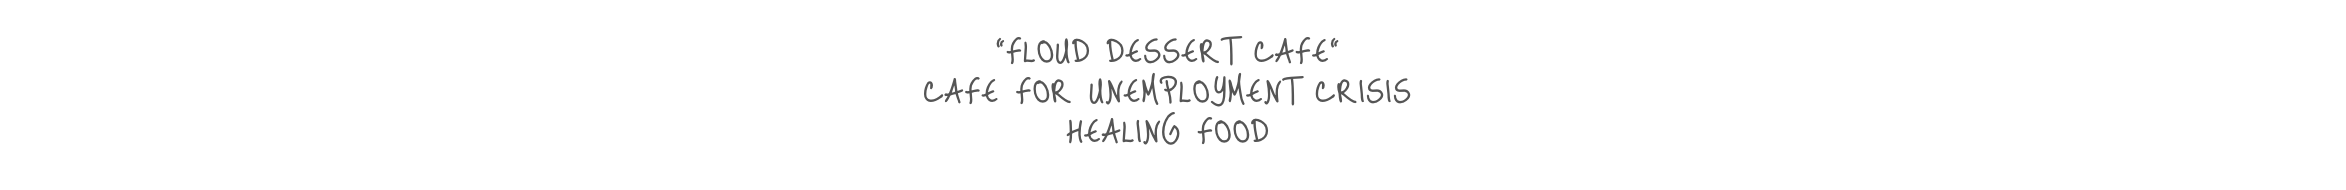 “FLOUD DESSERT CAFE“
CAFE FOR UNEMPLOYMENT CRISIS
HEALING FOOD